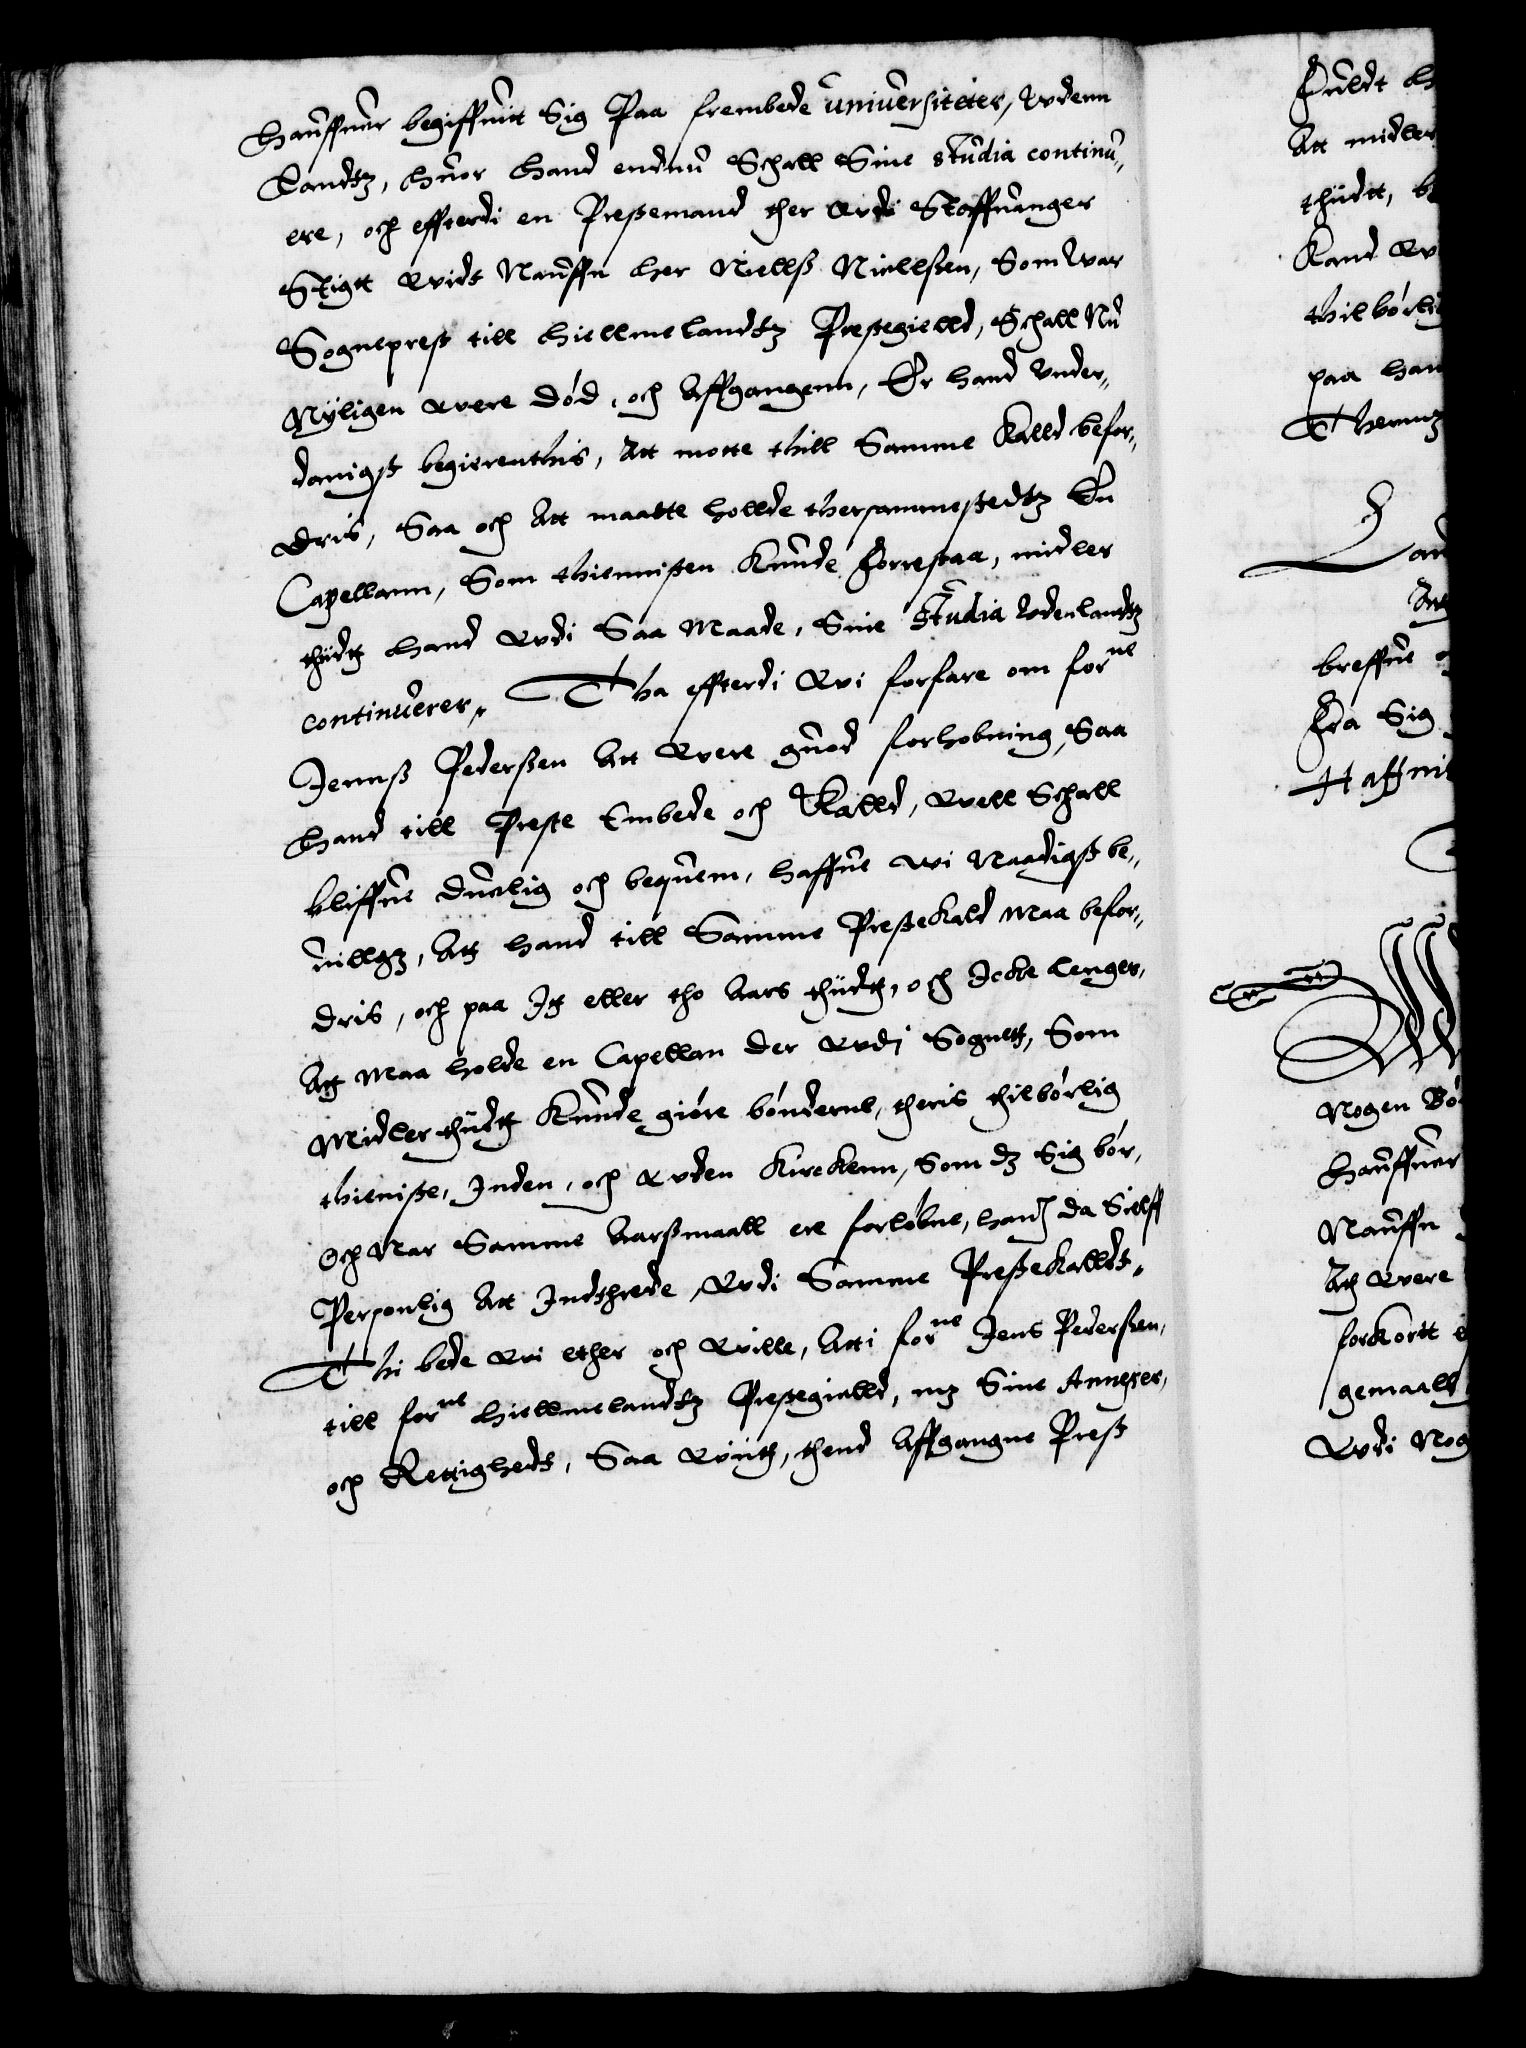 Haůffůer begiffůitt Sig Paa frembede ůniůersiteter, Vdenn
Landtz, hůor hand endnů Schall Sine studia continů„
ere, och effterdi en Prestemand ther wdi Staffůanger
Stigtt widt Naůffn her Nielß Nielßen, Som war
Sogneprest till Hiellmelandtz Prestegielld, Schall Nů
Nÿligen were död, och Affgangenn, Er hand vnder„
danigst begierenthis, Att motte thill Samme Kalld befor„
dris, Saa och Att maatte hollde thersammestedtz En
Capellann, Som thiennisten Kunde Forrestaa, midler
thidtt hand wdi Saa Maade, Sine studia vdenlandtz
continůerer„ Tha effterdi wi forfare om forne
Jennß Pederßen Att were gůod forhobning, Saa
hand till Preste Embede och Kalld, well Schall
bliffůe důelig och beqůem, haffůe wi Naadigst be„
ůillgtt, Att hand till Samme Prestekald Maa befor„
dris, och paa Jtt eller tho Aars thidtt, och Jcke lenger,
Att Maa holde en Capellan der wdj Sognett, Som
Midler thidtt Kunde giöre bönderne, theris thilbörlig
thieniste, Inden, och wden Kirckenn, Som dz Sig bör,
Och Nar Samme Aarßmaall ere forlöbne, hand da Sielff
Personlig Att Indthrede wdi Samme Prestekalldt„
Thi bede wi ether och wille, Att i forne Jens Pederßen,
till forne Hiellmelandtz Prestegielld, mz Sine Annexer,
och Rettighedt, Saa wiitt, thend Affgangne Prest
Fůldt
Att midler
thidtt,
Kand
thilbörlig
paa
Haffni
Nogen
Haůffůer
Naůffn
Att were
forkortt
gemaall
wdi Nog